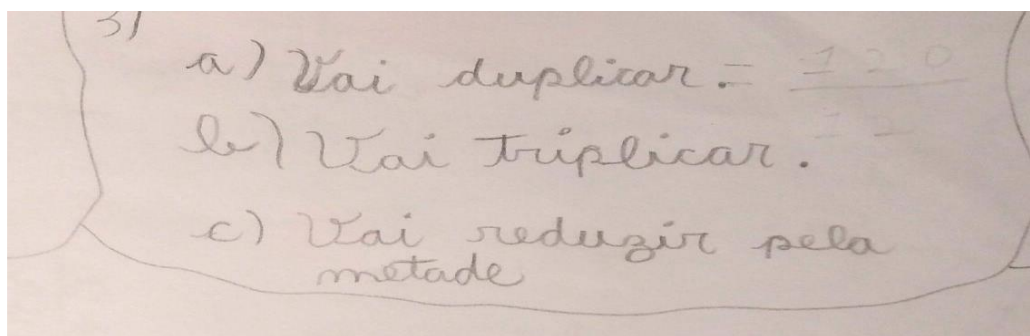 3)
a) Vai duplicar. = 120
12
b) Vai triplicar.
c) Vai reduzir pela
metade